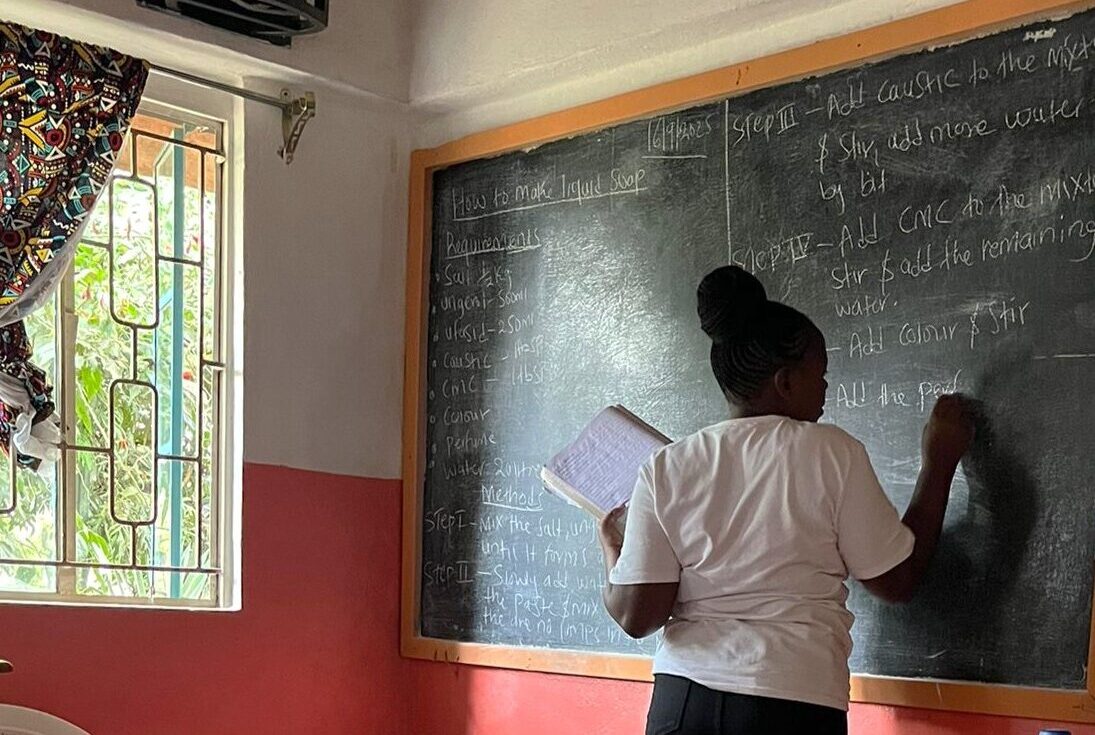 16/9/2025
How to make liquid Soap
Requirements
Salt ½kg
Ungerol-500ml
Ufasid-250ml
Caustic -
CMC -
Colour
Perfume
Water-20
Methods
STEP I - Mix the salt,
until it forms
STEP II - Slowly add
the paste & mix
the are no lumps
STEP III - Add caustic to the
& Stir, add more water
by bit
STEP IV - Add CMC to the
stir & add the remaining
water.
- Add colour & Stir
Add the